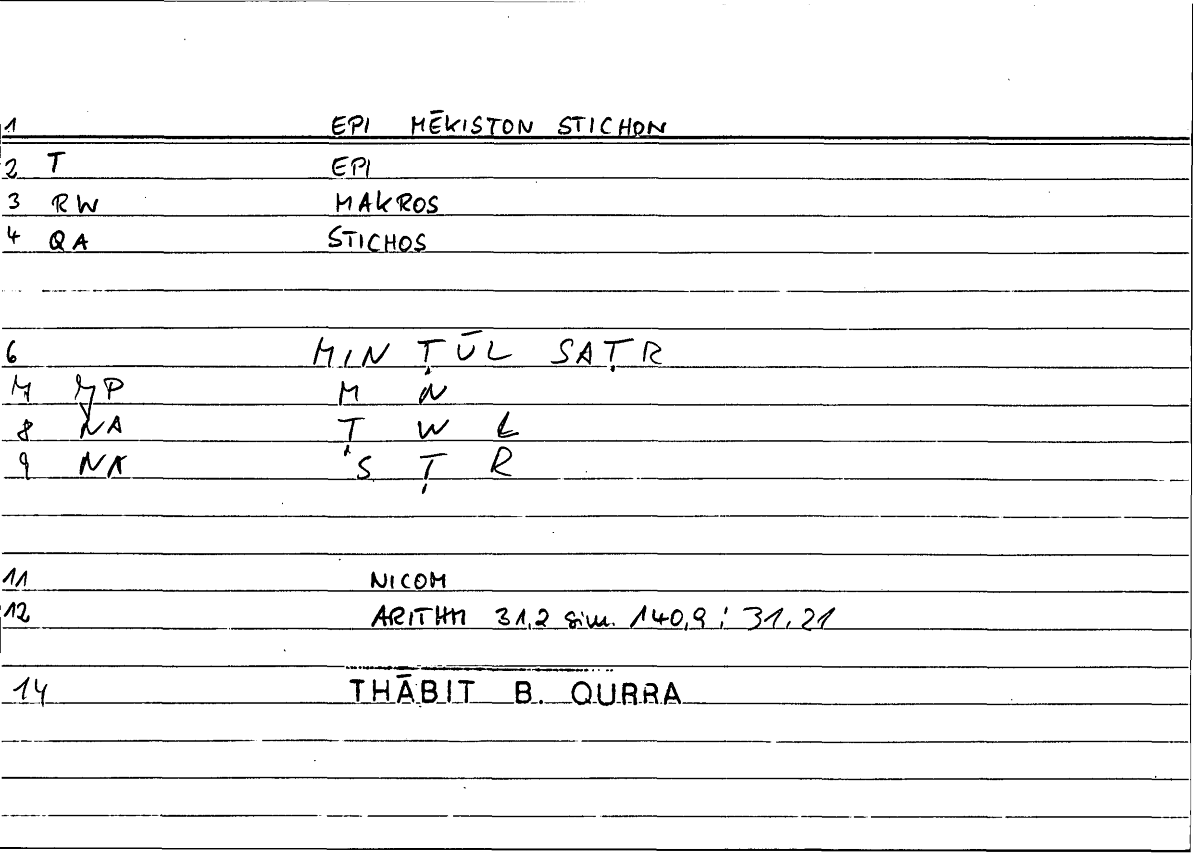 1 EPI MĒKISTON STICHON
2 T EPI
3 RW MAKROS
4 QA STICHOS
6 MIN ṬŪL SAṬR
NP M N
8 NA Ṭ W L
9 NA S Ṭ R
11 NICOM
12 ARITHM 31,2 sim. 140,9 ; 31,21
14 THĀBIT B. QURRA